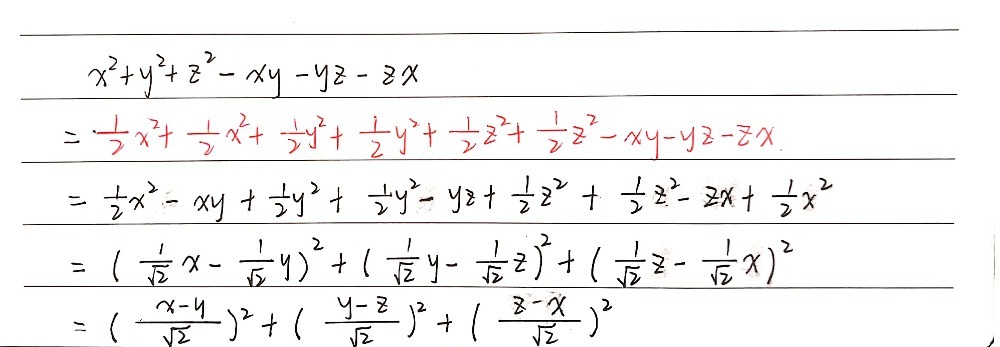 x²+y²+z²-xy-yz-zx
=½x²+½x²+½y²+½y²+½z²+½z²-xy-yz-zx
=½x²-xy+½y²+½y²-yz+½z²+½z²-zx+½x²
=(1/√2 x-1/√2 y)²+(1/√2 y-1/√2 z)²+(1/√2 z-1/√2 x)²
=((x-y)/√2)²+((y-z)/√2)²+((z-x)/√2)²